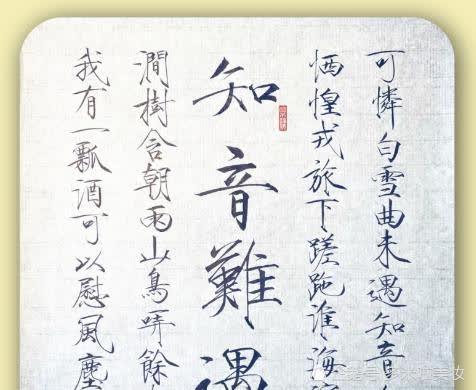 可憐白雪曲未遇知音
恓惶戎旅下蹉跎淮海
知音難遇
澗樹含朝雨山鳥哢餘
我有一瓢酒可以慰風塵